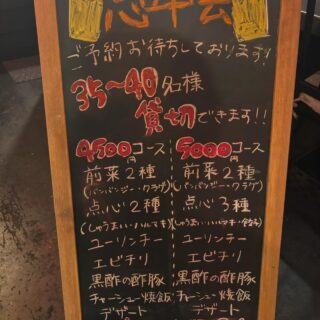 忘年会
ご予約お待ちしております!
35〜40名様
貸切できます!!
4500円コース
前菜2種
(バンバンジー・クラゲ)
点心2種
(しゅうまい・ハルマキ)
ユーリンチー
エビチリ
黒酢の酢豚
チャーシュー焼飯
デザート
5000円コース
前菜2種
(バンバンジー・クラゲ)
点心3種
(しゅうまい・ハルマキ・餃子)
ユーリンチー
エビチリ
黒酢の酢豚
チャーシュー焼飯
デザート